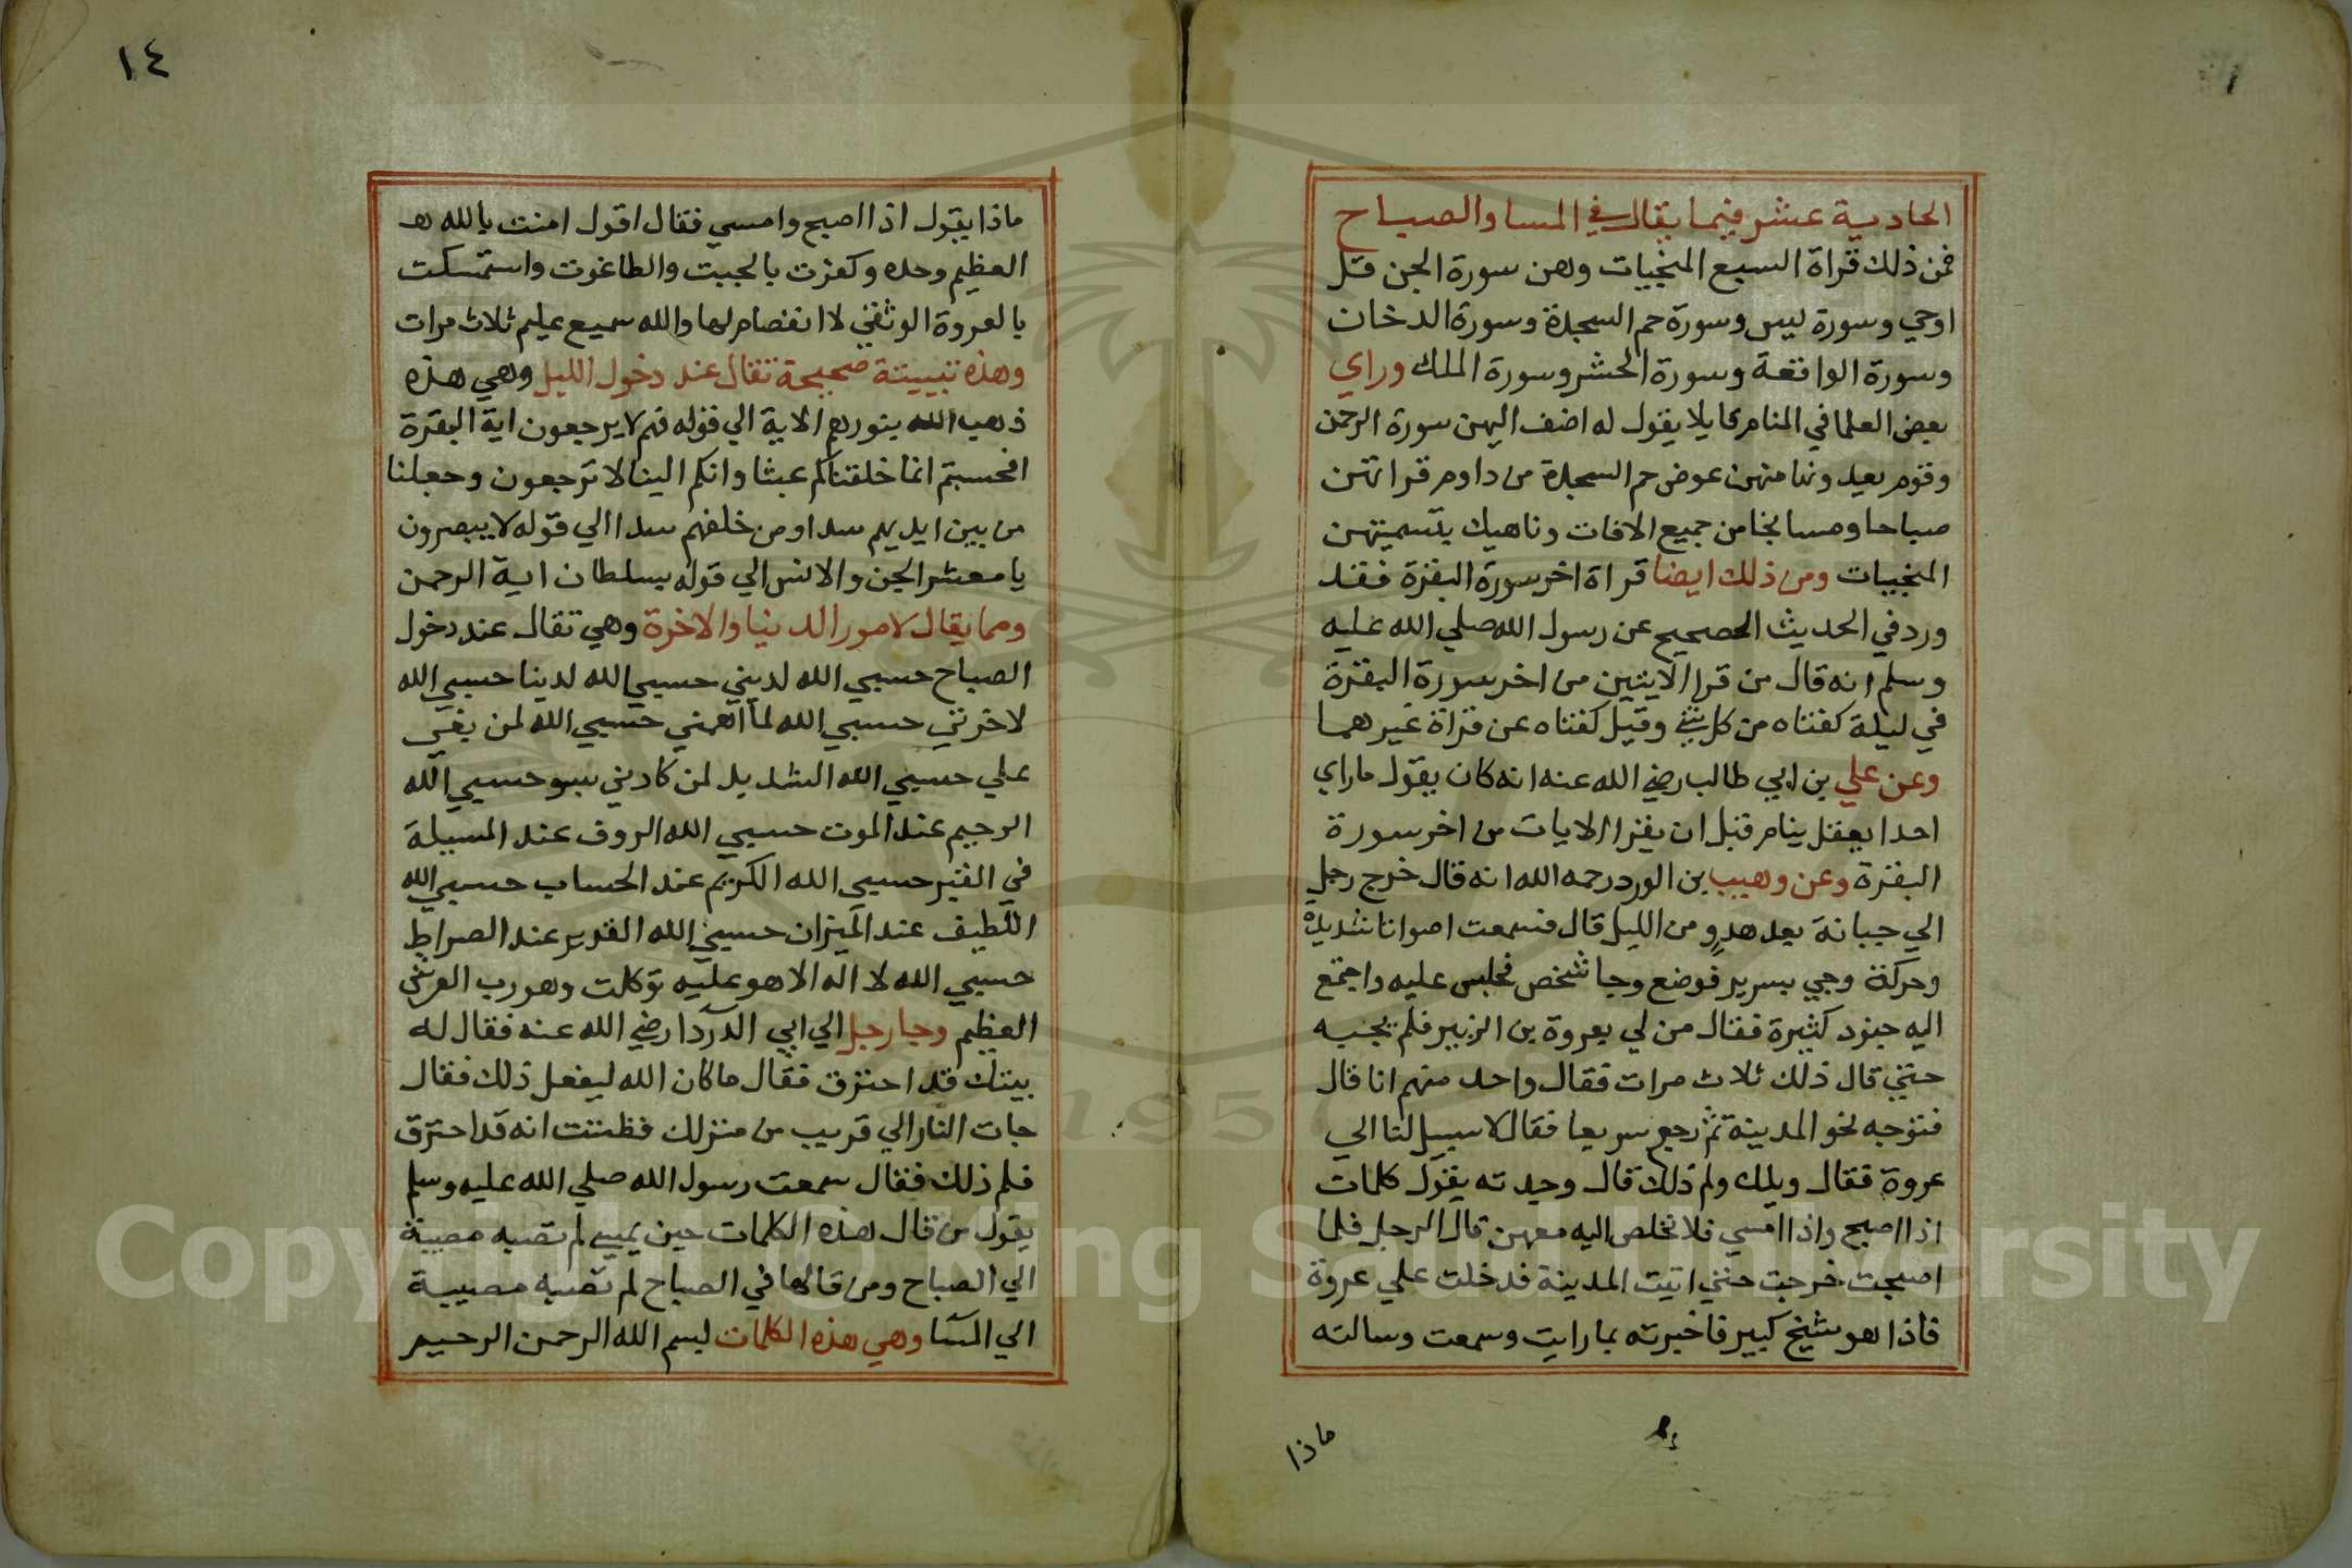 الحادية عشر فيما يقال في المسا والصباح
فمن ذلك قراة السبع المنجيات وهن سورة الجن قل
اوحي وسورة يس وسورة حم السجدة وسورة الدخان
وسورة الواقعة وسورة الحشر وسورة الملك وراي
بعض العلما في المنام قايلا يقول له اضف اليهن سورة الرحمن
وقوم يعدونها منهن عوض حم السجدة من داوم قراتهن
صباحا ومسا نجا من جميع الافات وناهيك بتسميتهن
المنجيات ومن ذلك ايضا قراة اخر سورة البقرة فقد
ورد في الحديث الصحيح عن رسول الله صلي الله عليه
وسلم انه قال من قرا الايتين من اخر سورة البقرة
في ليلة كفتاه من كل شي وقيل كفتاه عن قراة غيرهما
وعن علي بن ابي طالب رضي الله عنه انه كان يقول ما راي
احدا يعقل ينام قبل ان يقرا الايات من اخر سورة
البقرة وعن وهيب بن الورد رحمه الله انه قال خرج رجل
الي جبانة بعد هدو من الليل قال فسمعت اصواتا شديدة
وحركة وجي بسرير فوضع وجا شخص فجلس عليه واجتمع
اليه جنود كثيرة فقال من لي بعروة بن الزبير فلم يجبه
حتي قال ذلك ثلاث مرات فقال واحد منهم انا قال
فتوجه نحو المدينة ثم رجع سريعا فقال لا سبيل لنا الي
عروة فقال ويلك ولم ذلك قال وجدته يقول كلمات
اذا اصبح واذا امسي فلا نخلص اليه معهن قال الرجل فلما
اصبحت خرجت حتي اتيت المدينة فدخلت علي عروة
فاذا هو شيخ كبير فاخبرته بما رايت وسمعت وسالته
ماذا
١٤
ماذا يقول اذا اصبح وامسي فقال اقول امنت بالله
العظيم وحده وكفرت بالجبت والطاغوت واستمسكت
بالعروة الوثقي لا انفصام لها والله سميع عليم ثلاث مرات
وهذه تبييتة صحيحة تقال عند دخول الليل وهي هذه
ذهب الله بنورهم الاية الي قوله فهم لا يرجعون اية البقرة
افحسبتم انما خلقناكم عبثا وانكم الينا لا ترجعون وجعلنا
من بين ايديهم سدا ومن خلفهم سدا الي قوله لا يبصرون
يا معشر الجن والانس الي قوله بسلطان اية الرحمن
ومما يقال لامور الدنيا والاخرة وهي تقال عند دخول
الصباح حسبي الله لديني حسبي الله لدينا حسبي الله
لاخرتي حسبي الله لما اهمني حسبي الله لمن بغي
علي حسبي الله الشديد لمن كادني بسو حسبي الله
الرحيم عند الموت حسبي الله الروف عند المسيلة
في القبر حسبي الله الكريم عند الحساب حسبي الله
اللطيف عند الميزان حسبي الله القدير عند الصراط
حسبي الله لا اله الا هو عليه توكلت وهو رب العرش
العظيم وجا رجل الي ابي الدردا رضي الله عنه فقال له
بيتك قد احترق فقال ما كان الله ليفعل ذلك فقال
جات النار الي قريب من منزلك فظننت انه قد احترق
فلم ذلك فقال سمعت رسول الله صلي الله عليه وسلم
يقول من قال هذه الكلمات حين يمسي لم تصبه مصيبة
الي الصباح ومن قالها في الصباح لم تصبه مصيبة
الي المسا وهي هذه الكلمات بسم الله الرحمن الرحيم
Copyright © King Saud University
1957